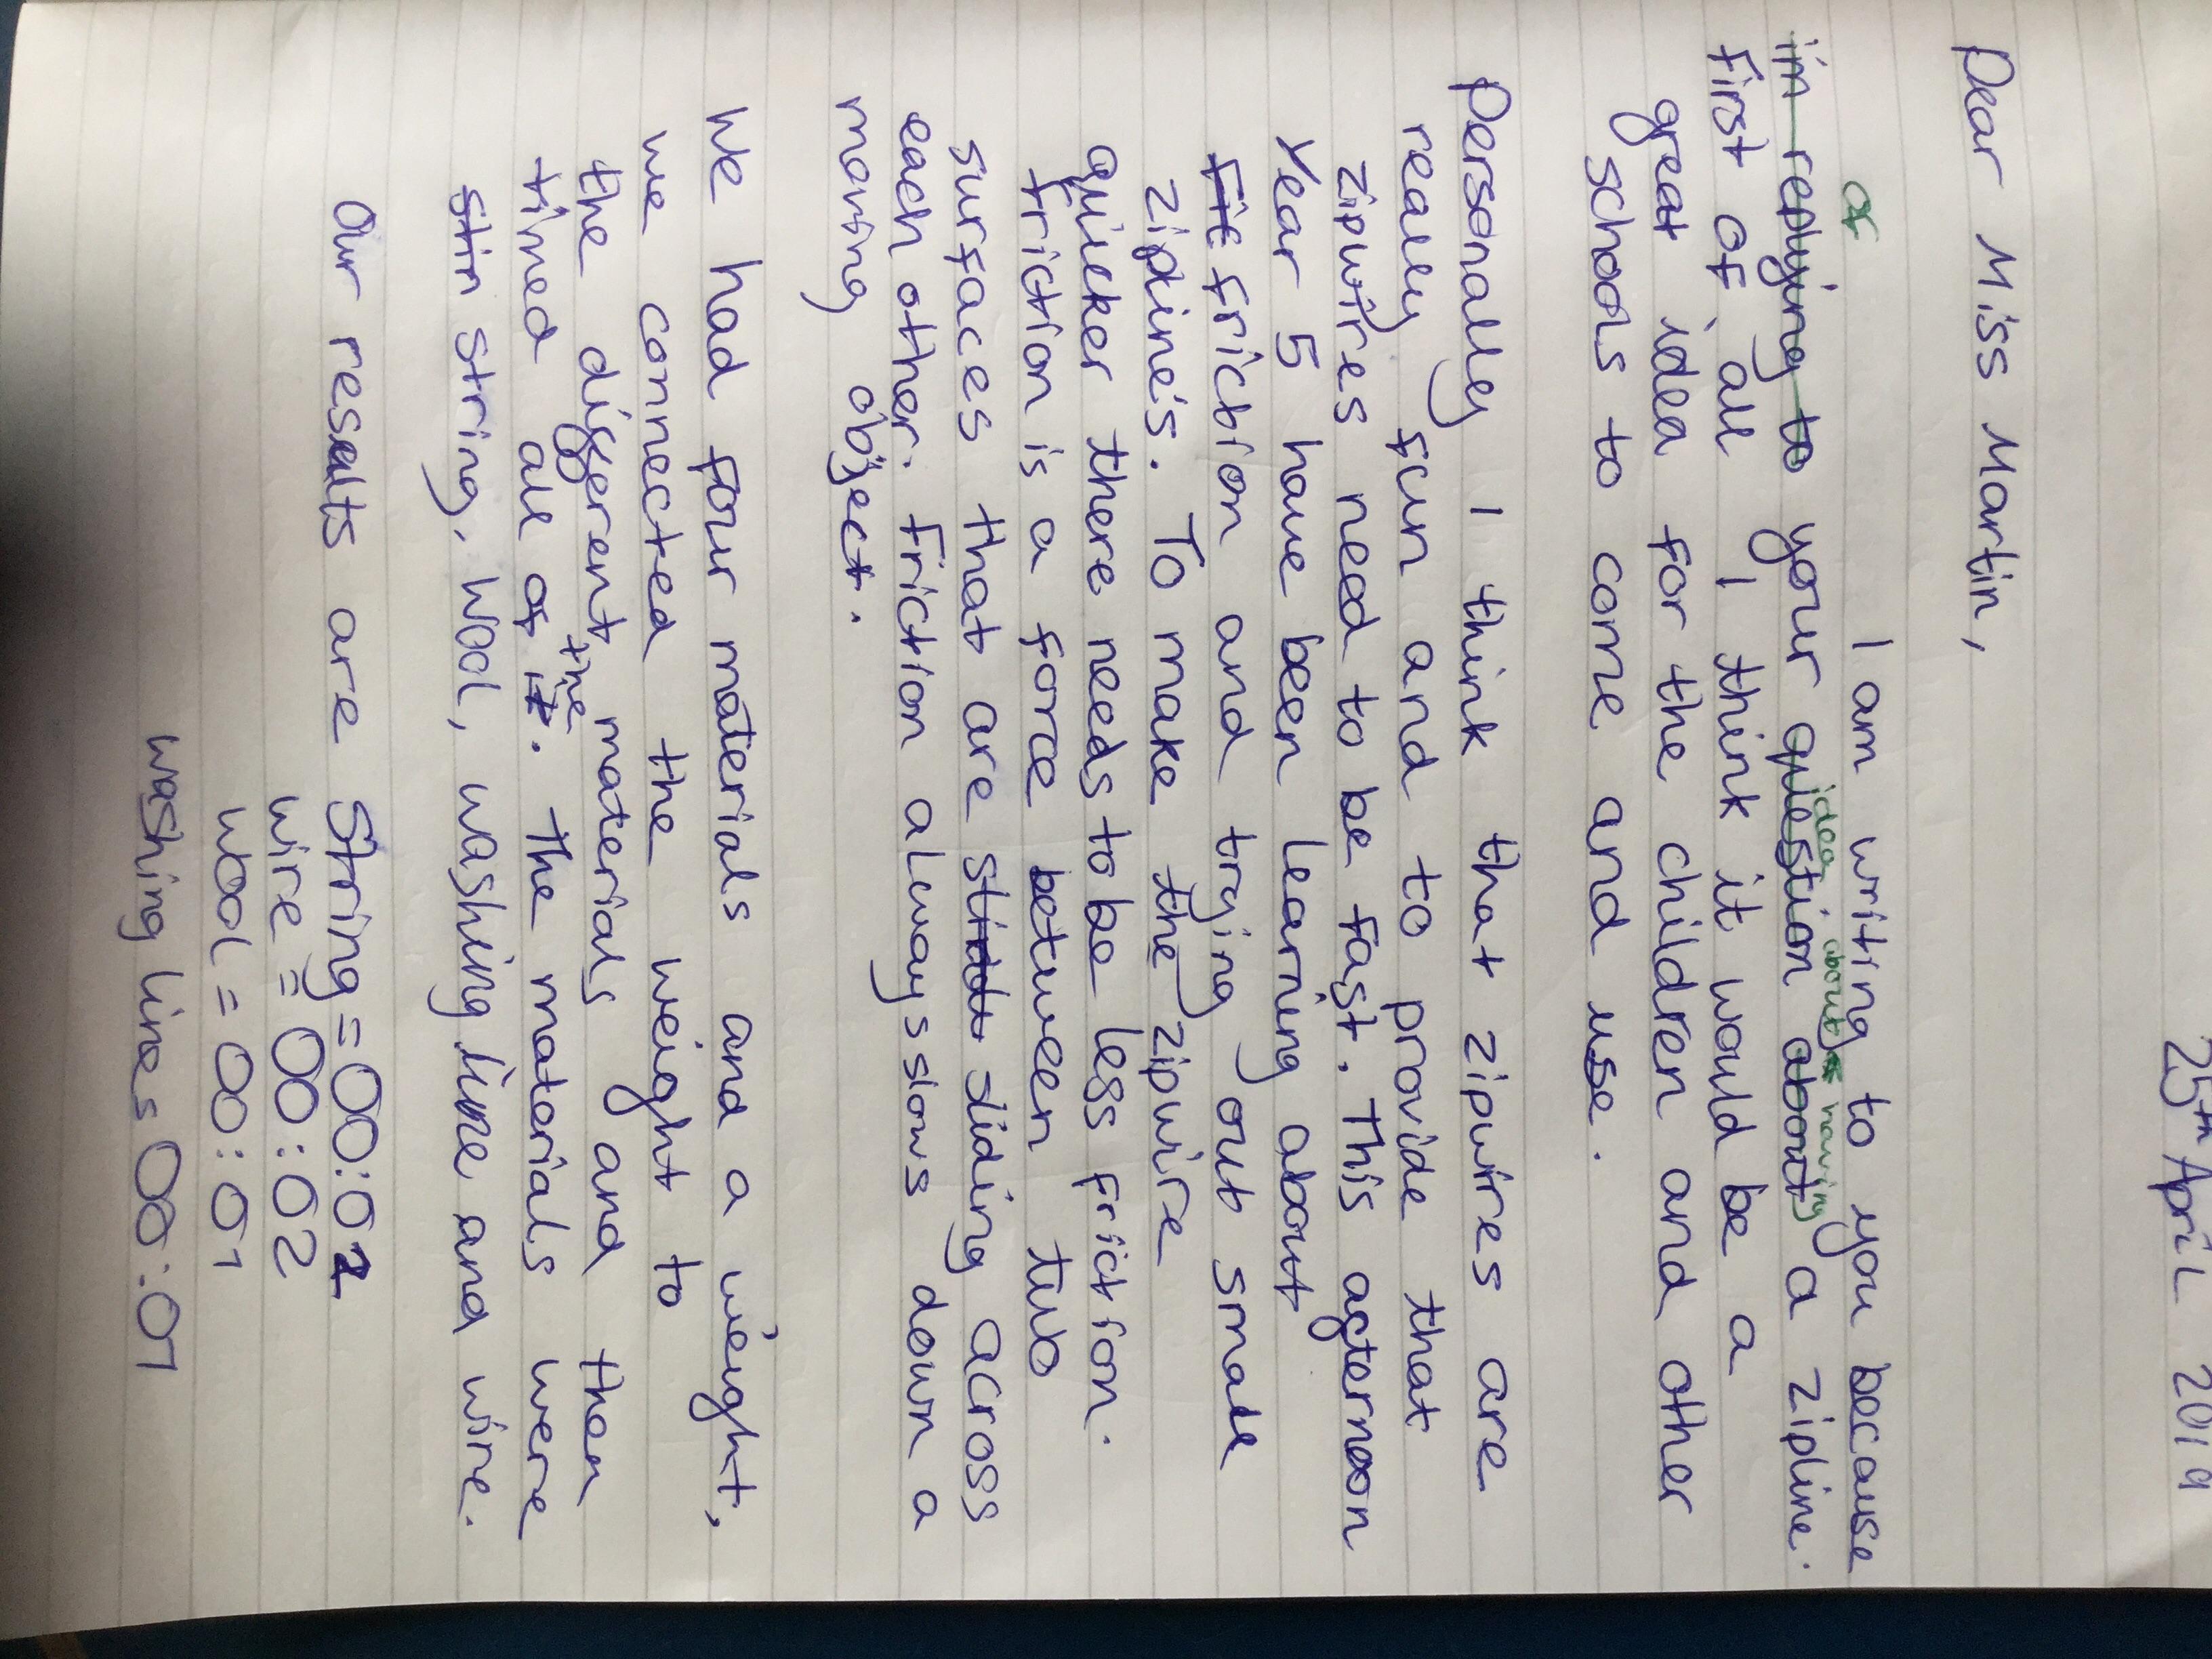 25th April 2019
Dear Miss Martin,
I am writing to you because
of
im replying to your question about a zipline.
idea about having
First of all I think it would be a
great idea for the children and other
schools to come and use.
Personally I think that zipwires are
really fun and to provide that
zipwires need to be fast. This afternoon
Year 5 have been learning about
Fit friction and trying out small
zipline's. To make the zipwire
quicker there needs to be less friction.
friction is a force between two
surfaces that are sliding across
each other. friction always slows down a
moving object.
We had four materials and a weight,
we connected the weight to
the different materials and then
timed all of it. The materials were
time
strin string, wool, washing line and wire.
Our results are String = 00:02
wire = 00:02
wool = 00:01
washing line = 00:01